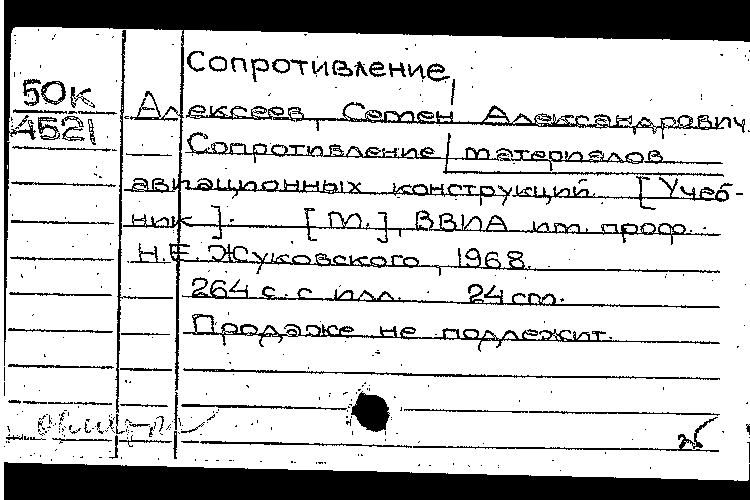 Сопротивление
50к
4521
Алексеев, Семен Александрович.
Сопротивление материалов
авиационных конструкций. [Учеб-
ник]. [М.], ВВИА им. проф.
Н.Е. Жуковского, 1968.
264 с. с илл. 24 см.
Продаже не подлежит.